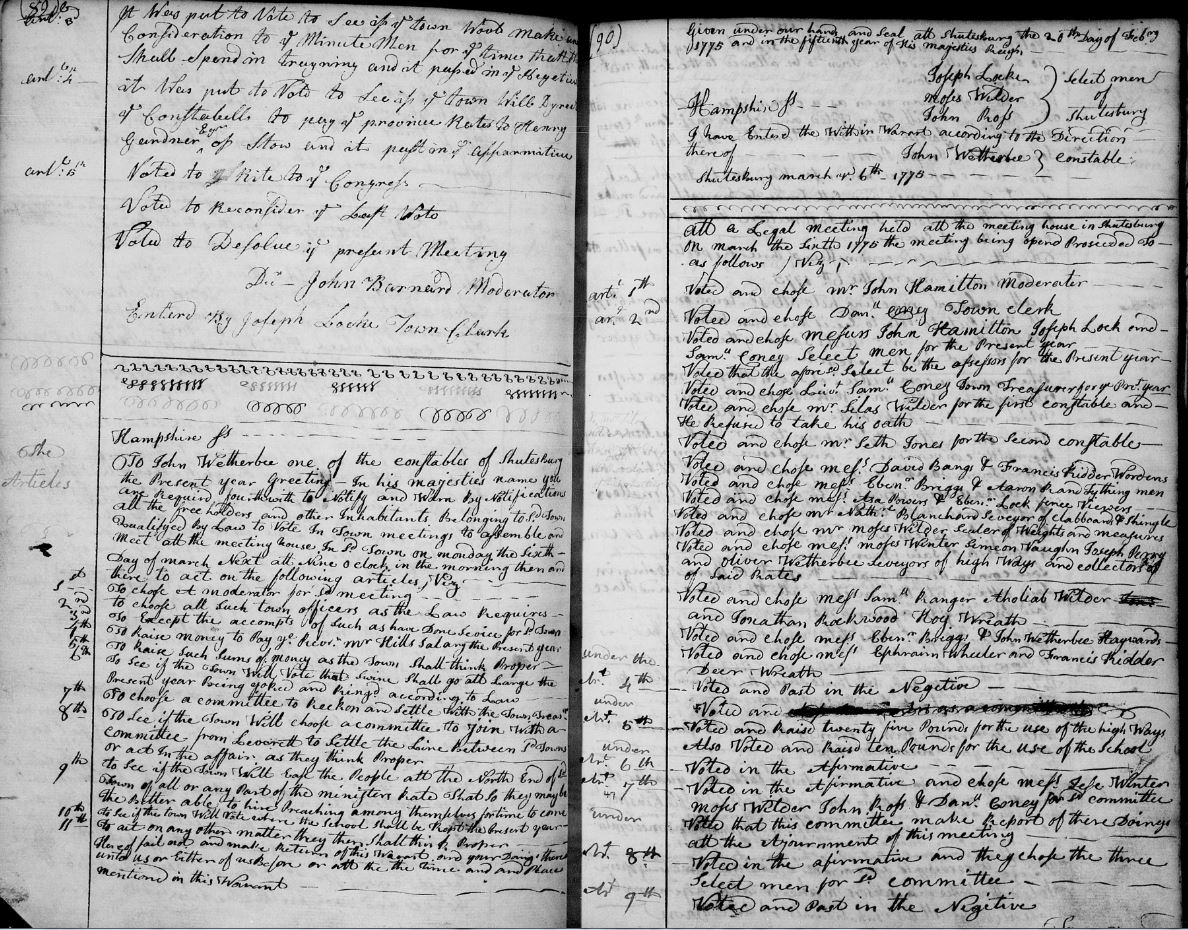 (89)
art: 3 It Was put to Vote to See if ye town Woud make any
Consideration to ye Minute Men for ye times that they
Shall Spend in traigning and it passd in ye Negetive
art: 4th it Was put to Vote to See if ye town Will Dyrect
ye Constabells to pay ye province Rates to Henry
Gardner Esqr of Stow and it past in ye apparmative
art: 5th Voted to Rite to ye Congress
Voted to Reconsider ye Last Vote
Voted to Desolve ye present Meeting
Dn John Barnard Moderator
Enterd By Joseph Locke Town Clark
Hampshire ss
The
Articles
To John Wetherbee one of the constables of Shutesbury
the Present year Greeting In his majesties name you
are Requird fourthwith to Notify and Warn By Notifications
all the free holders and other Inhabitants Belonging to sd Town
Qualifyed By Law to Vote In Town meetings to assemble and
meet att the meeting house In sd Town on monday the Sixth
Day of march Next att Nine o clock in the morning then and
there to act on the following articles, Viz
1st To chose A moderator for sd meeting
2nd to choose all Such town officers as the Law Requires
3d To Except the accompts of Such as have Done Service for sd Town
4th To Raise money to Pay ye Revd mr Hills Salary the Present year
5th To Raise Such Sums of money as the Town Shall think Proper
6th To See if the Town Will Vote that Swine Shall go att Large the
Present year Being yoked and Ring'd according to Law
7th To choose a committee to Reckon and Settle With the Town Treasr
8th To See if the Town Will choose a committee to Join With a
committee from Leverett to Settle the Line Between sd Towns
or act In the affair as they think Proper
9th to See if the Town Will Ease the People att the North End of sd
Town of all or any Part of the ministers Rate That So they may be
the Better able to hire Preaching among themselves for time to come
10th to See if the Town Will Vote where the School shall be Kept the Present year
11th To act on any other matter they then Shall think Proper
Here of fail not and make Return of this Warant and your Doings there
unto us or Either of us Before or att the time and and Place
mentioned in this Warrant
(90)
Given under our hands and Seal att Shutesbury the 20th Day of Febry
1775 and in the fifteenth year of His majesties Reign
Joseph Locke
Moses Wilder
John Ross
Select men
of
Shutesbury
Hampshire ss
I have Enterd the With in Warant according to the Direction
there of John Wetherbee constable
Shutesbury march ye 6th 1775
att a Legal meeting held att the meeting house in Shutesbury
on march the Sixth 1775 the meeting being opend Proceeded To
as follows Viz
art: 1th Voted and chose mr John Hamilton Moderater
ar: 2nd Voted and chose Danll Coney Town clerk
Voted and chose messurs John Hamilton Joseph Lock and
Samll Coney Select men for the Present year
Voted that the afore sd Select be the assessors for the Present year
Voted and chose Lieut Samll Coney Town Treasurer for ye Prst year
Voted and chose mr Silas Wilder for the first constable and
He Refused to take his oath
Voted and chose mr Seth Jones for the Second constable
Voted and chose messrs David Bangs & Francis Kidder Wordens
Voted and chose messrs Ebenr Briggs & Aaron Rand Tything men
Voted and chose messrs Asa Powers & Ebenr Lock fence Viewers
Voted and chose mr Nathll Blanchard Seveyor of clabboard & Shingle
Voted and chose mr moses Wilder Sealer of Weights and measures
Voted and chose messrs moses Winter Simeon Vaughn Joseph Perry
and oliver Wetherbee Seveyors of high Ways and collectors of
of Said Rates
Voted and chose messrs Samll Ranger Aholiab Wilder
and Jonathan Rockwood Hog Wreath
Voted and chose messrs Ebenr Briggs & John Wetherbee Haywards
Voted and chose messrs Ephraim Wheeler and Francis Kidder
Deer Wreath
under the
Art 4th Voted and Past in the Negitive
under Voted and
Art 5th Voted and Raisd twenty five Pounds for the use of the high Ways
Also Voted and Raisd ten Pounds for the use of the School
under
Art 6th Voted in the Afirmative
Art 7th Voted in the Afirmative and chose messrs Jese Winter
moses Wilder John Ross & Danl Coney for sd committee
under Voted that this committee make Report of there Doings
att the Ajournment of this meeting
Art 8th Voted in the afirmative and they chose the three
Select men for sd committee
Art 9th Voted and Past in the Negitive